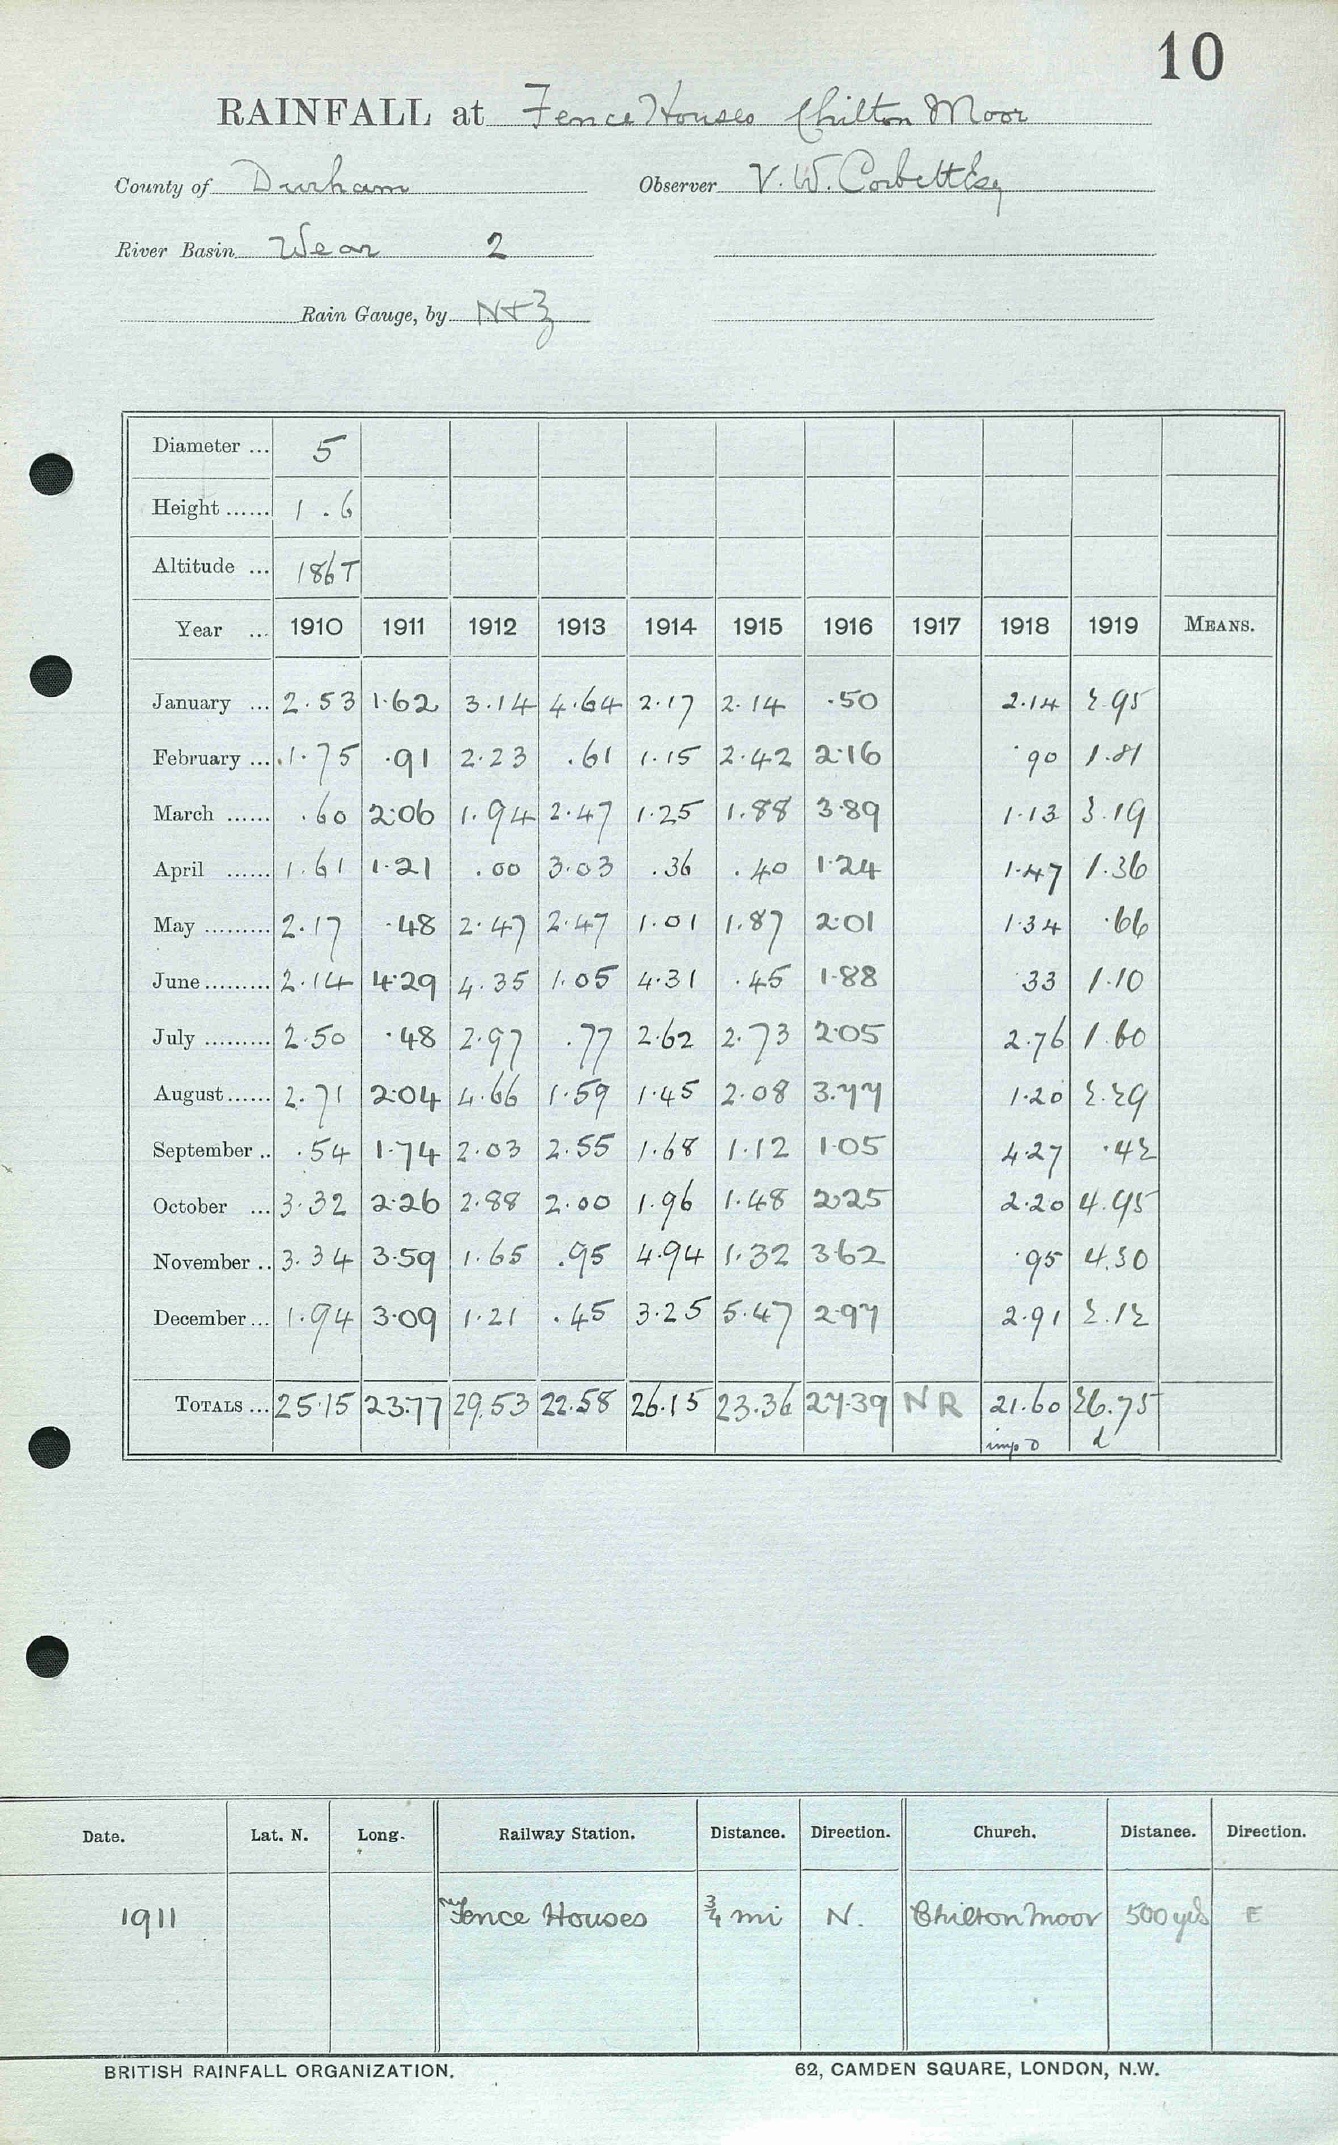 10
RAINFALL at Fence Houses Chilton Moor
County of Durham Observer V. W. Corbett Esq
River Basin Wear 2
Rain Gauge, by N+Z
Diameter ... 5
Height ...... 1 . 6
Altitude ... 186T
Year ... 1910 1911 1912 1913 1914 1915 1916 1917 1918 1919 MEANS.
January ... 2.53 1.62 3.14 4.64 2.17 2.14 .50 2.14 2.95
February ... 1.75 .91 2.23 .61 1.15 2.42 2.16 .90 1.81
March ...... .60 2.06 1.94 2.47 1.25 1.88 3.89 1.13 3.19
April ...... 1.61 1.21 .00 3.03 .36 .40 1.24 1.47 1.36
May ......... 2.17 .48 2.47 2.47 1.01 1.87 2.01 1.34 .66
June ......... 2.14 4.29 4.35 1.05 4.31 .45 1.88 .33 1.10
July ......... 2.50 .48 2.97 .77 2.62 2.73 2.05 2.76 1.60
August ...... 2.71 2.04 4.66 1.59 1.45 2.08 3.77 1.20 2.29
September .. .54 1.74 2.03 2.55 1.68 1.12 1.05 4.27 .42
October ... 3.32 2.26 2.88 2.00 1.96 1.48 2.25 2.20 4.95
November .. 3.34 3.59 1.65 .95 4.94 1.32 3.62 .95 4.30
December ... 1.94 3.09 1.21 .45 3.25 5.47 2.97 2.91 2.12
TOTALS ... 25.15 23.77 29.53 22.58 26.15 23.36 27.39 NR 21.60 26.75
imp D d
Date. Lat. N. Long. Railway Station. Distance. Direction. Church. Distance. Direction.
1911 Fence Houses ¾ mi N. Chilton Moor 500 yds E
BRITISH RAINFALL ORGANIZATION. 62, CAMDEN SQUARE, LONDON, N.W.